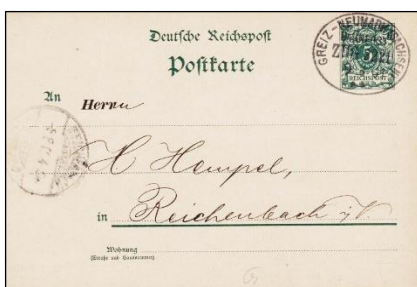 Deutsche Reichspost
Postkarte
GREIZ-NEUMARK
SACHSEN
ZUG
5
REICHSPOST
An
Herrn
H Hempel,
in Reichenbach i/V.
Wohnung
(Straße und Hausnummer)